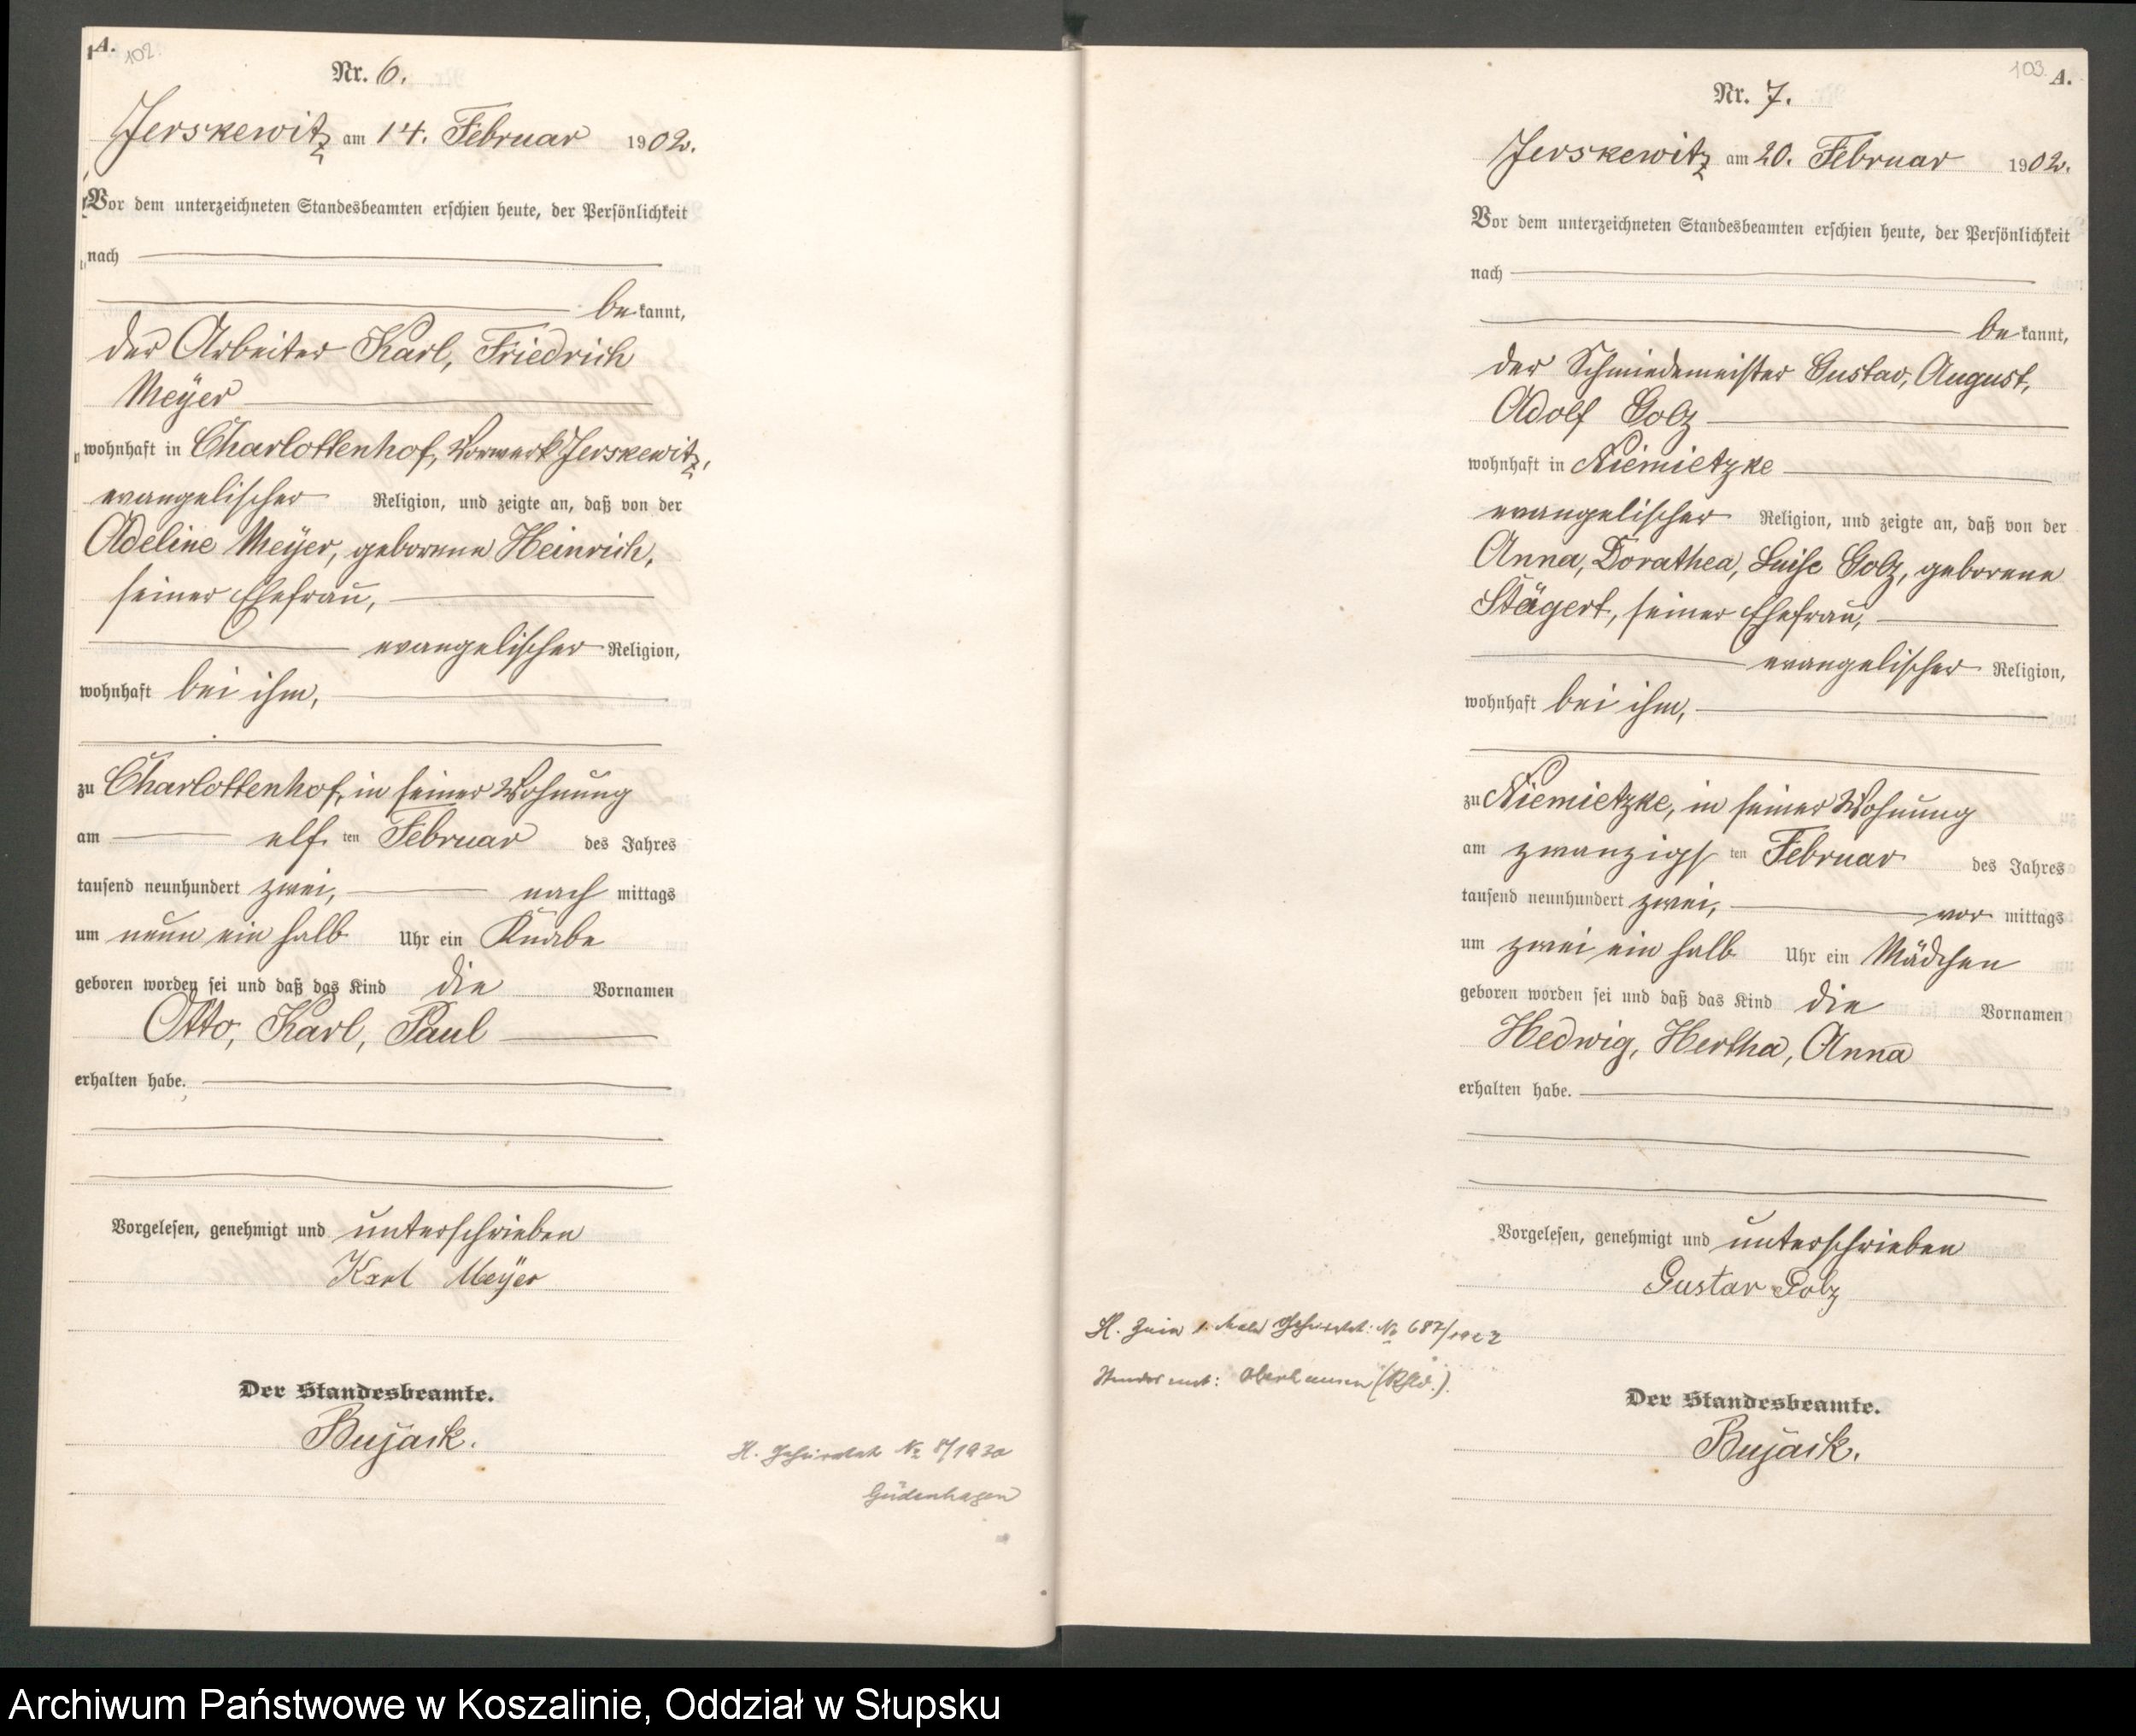 A.
102.
Nr. 6.
Jerskewitz am 14. Februar 1902.
Vor dem unterzeichneten Standesbeamten erschien heute, der Persönlichkeit
nach
be kannt,
der Arbeiter Karl, Friedrich
Meÿer
wohnhaft in Charlottenhof, Vorwerk Jerskewitz,
evangelischer Religion, und zeigte an, daß von der
Adeline Meÿer, geborene Heinrich,
seiner Ehefrau,
evangelischer Religion,
wohnhaft bei ihm,
zu Charlottenhof, in seiner Wohnung
am elf ten Februar des Jahres
tausend neunhundert zwei, nach mittags
um neun ein halb Uhr ein Knabe
geboren worden sei und daß das Kind die Vornamen
Otto, Karl, Paul
erhalten habe.
Vorgelesen, genehmigt und unterschrieben
Karl Meÿer
Der Standesbeamte.
Bujack.
H. Geheiratet № 8/1930
Güdenhagen
103.
A.
Nr. 7.
Jerskewitz am 20. Februar 1902.
Vor dem unterzeichneten Standesbeamten erschien heute, der Persönlichkeit
nach
be kannt,
der Schmiedemeister Gustav, August,
Adolf Golz
wohnhaft in Niemietzke
evangelischer Religion, und zeigte an, daß von der
Anna, Dorathea, Luise Golz, geborene
Stägert, seiner Ehefrau,
evangelischer Religion,
wohnhaft bei ihm,
zu Niemietzke, in seiner Wohnung
am zwanzigs ten Februar des Jahres
tausend neunhundert zwei, vor mittags
um zwei ein halb Uhr ein Mädchen
geboren worden sei und daß das Kind die Vornamen
Hedwig, Hertha, Anna
erhalten habe.
Vorgelesen, genehmigt und unterschrieben
Gustav Golz
H. 1. Male Geheiratet: № 687/1922
Standesamt: Oberhausen (Rhld.).
Der Standesbeamte.
Bujack.
Archiwum Państwowe w Koszalinie, Oddział w Słupsku